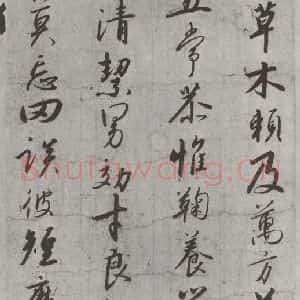 草木賴及萬方
五常恭惟鞠養豈
清絜男効才良
莫忘罔談彼短靡
Shufawang.Cn